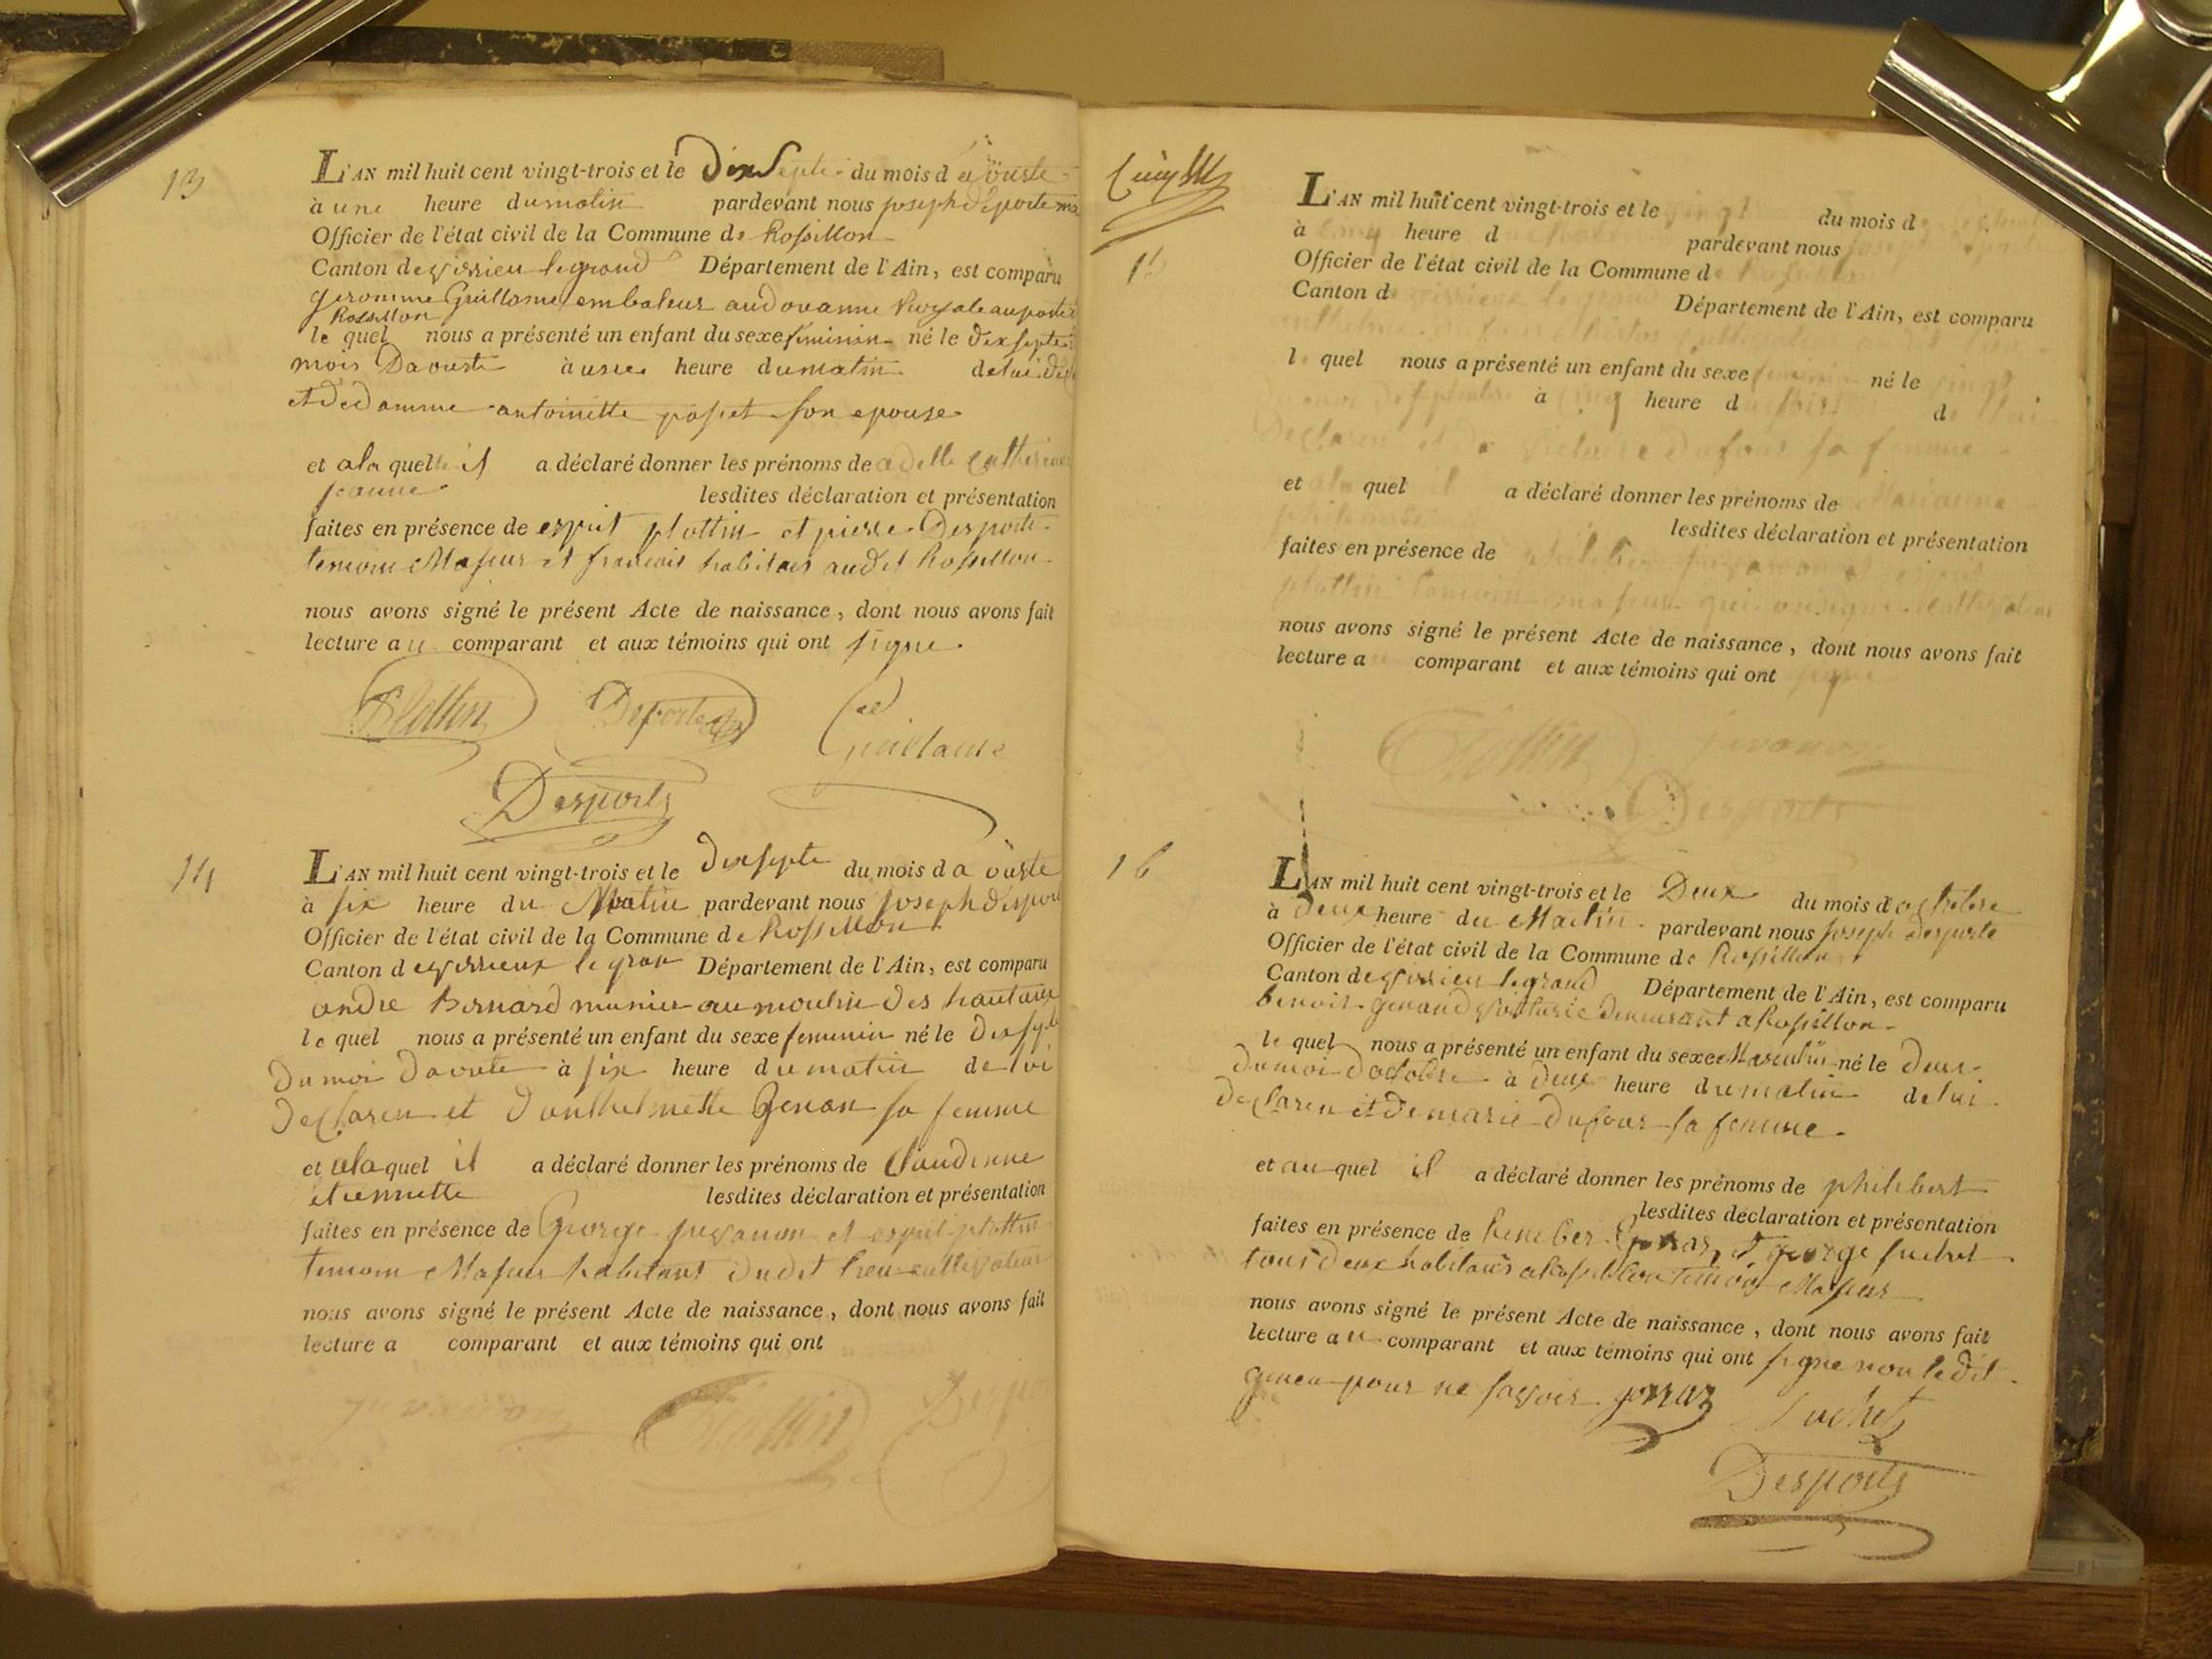 13
L'AN mil huit cent vingt-trois et le Dix Septe du mois d aöuste
à une heure du matin pardevant nous joseph desporte
Officier de l'état civil de la Commune de Rossillon
Canton de virieu le grand Département de l'Ain, est comparu
geromme Guillame embaleur au douanne Royale au poste
Rossillon
le quel nous a présenté un enfant du sexe feminin né le dix septe
mois Daouste à une heure du matin de lui
et de damme antoinette posset son epouse
et a la quelle il a déclaré donner les prénoms de adelle Catherine
jeanne lesdites déclaration et présentation
faites en présence de esprit plottin et pierre Desporte
temoin Majeur et francois habitant audit Rossillon
nous avons signé le présent Acte de naissance, dont nous avons fait
lecture au comparant et aux témoins qui ont signe.
Plottin Desporte Guillame
Desports
14
L'AN mil huit cent vingt-trois et le Dix septe du mois d aöuste
à six heure du Matin pardevant nous joseph
Officier de l'état civil de la Commune de Rossillon
Canton de virieux le gran Département de l'Ain, est comparu
andre Bernard munier au moulin des
le quel nous a présenté un enfant du sexe feminin né le dix septe
du moi Daoute à six heure du matin de lui
declaren et Danthelmette Genan sa femme
et a la quel il a déclaré donner les prénoms de Claudinne
etiennette lesdites déclaration et présentation
faites en présence de George juvanon et esprit plottin
temoin Majeur habitant dudit lieu cultivateur
nous avons signé le présent Acte de naissance, dont nous avons fait
lecture a comparant et aux témoins qui ont
juvanon Plottin
L'AN mil huit cent vingt-trois et le vingt du mois de
à cinq heure d pardevant nous joseph
Officier de l'état civil de la Commune de Rossillon
Canton de virieux le grand Département de l'Ain, est comparu
anthelme
le quel nous a présenté un enfant du sexe feminin né le vingt
du moi de septembre à cinq heure du soir de lui
declaren et de Victoire dufour sa femme
et a la quel il a déclaré donner les prénoms de Marianne
lesdites déclaration et présentation
faites en présence de philiber juvanon et esprit
plottin temoin majeur qui on signe cultivateur
nous avons signé le présent Acte de naissance, dont nous avons fait
lecture a comparant et aux témoins qui ont signe
Plottin juvanon
Desports
16
L'AN mil huit cent vingt-trois et le Deux du mois d octobre
à Deux heure du Matin pardevant nous joseph desporte
Officier de l'état civil de la Commune de Rossillon
Canton de virieu le grand Département de l'Ain, est comparu
benoit demeurant a Rossillon
le quel nous a présenté un enfant du sexe Masculin né le Deux
du moi doctobre à deux heure du matin de lui
declaren et de marie dufour sa femme
et au quel il a déclaré donner les prénoms de philibert
lesdites déclaration et présentation
faites en présence de et george suchet
tous deux habitans a Rossillon temoin Majeur
nous avons signé le présent Acte de naissance, dont nous avons fait
lecture au comparant et aux témoins qui ont signe non ledit
pour ne savoir
Suchet
Desports